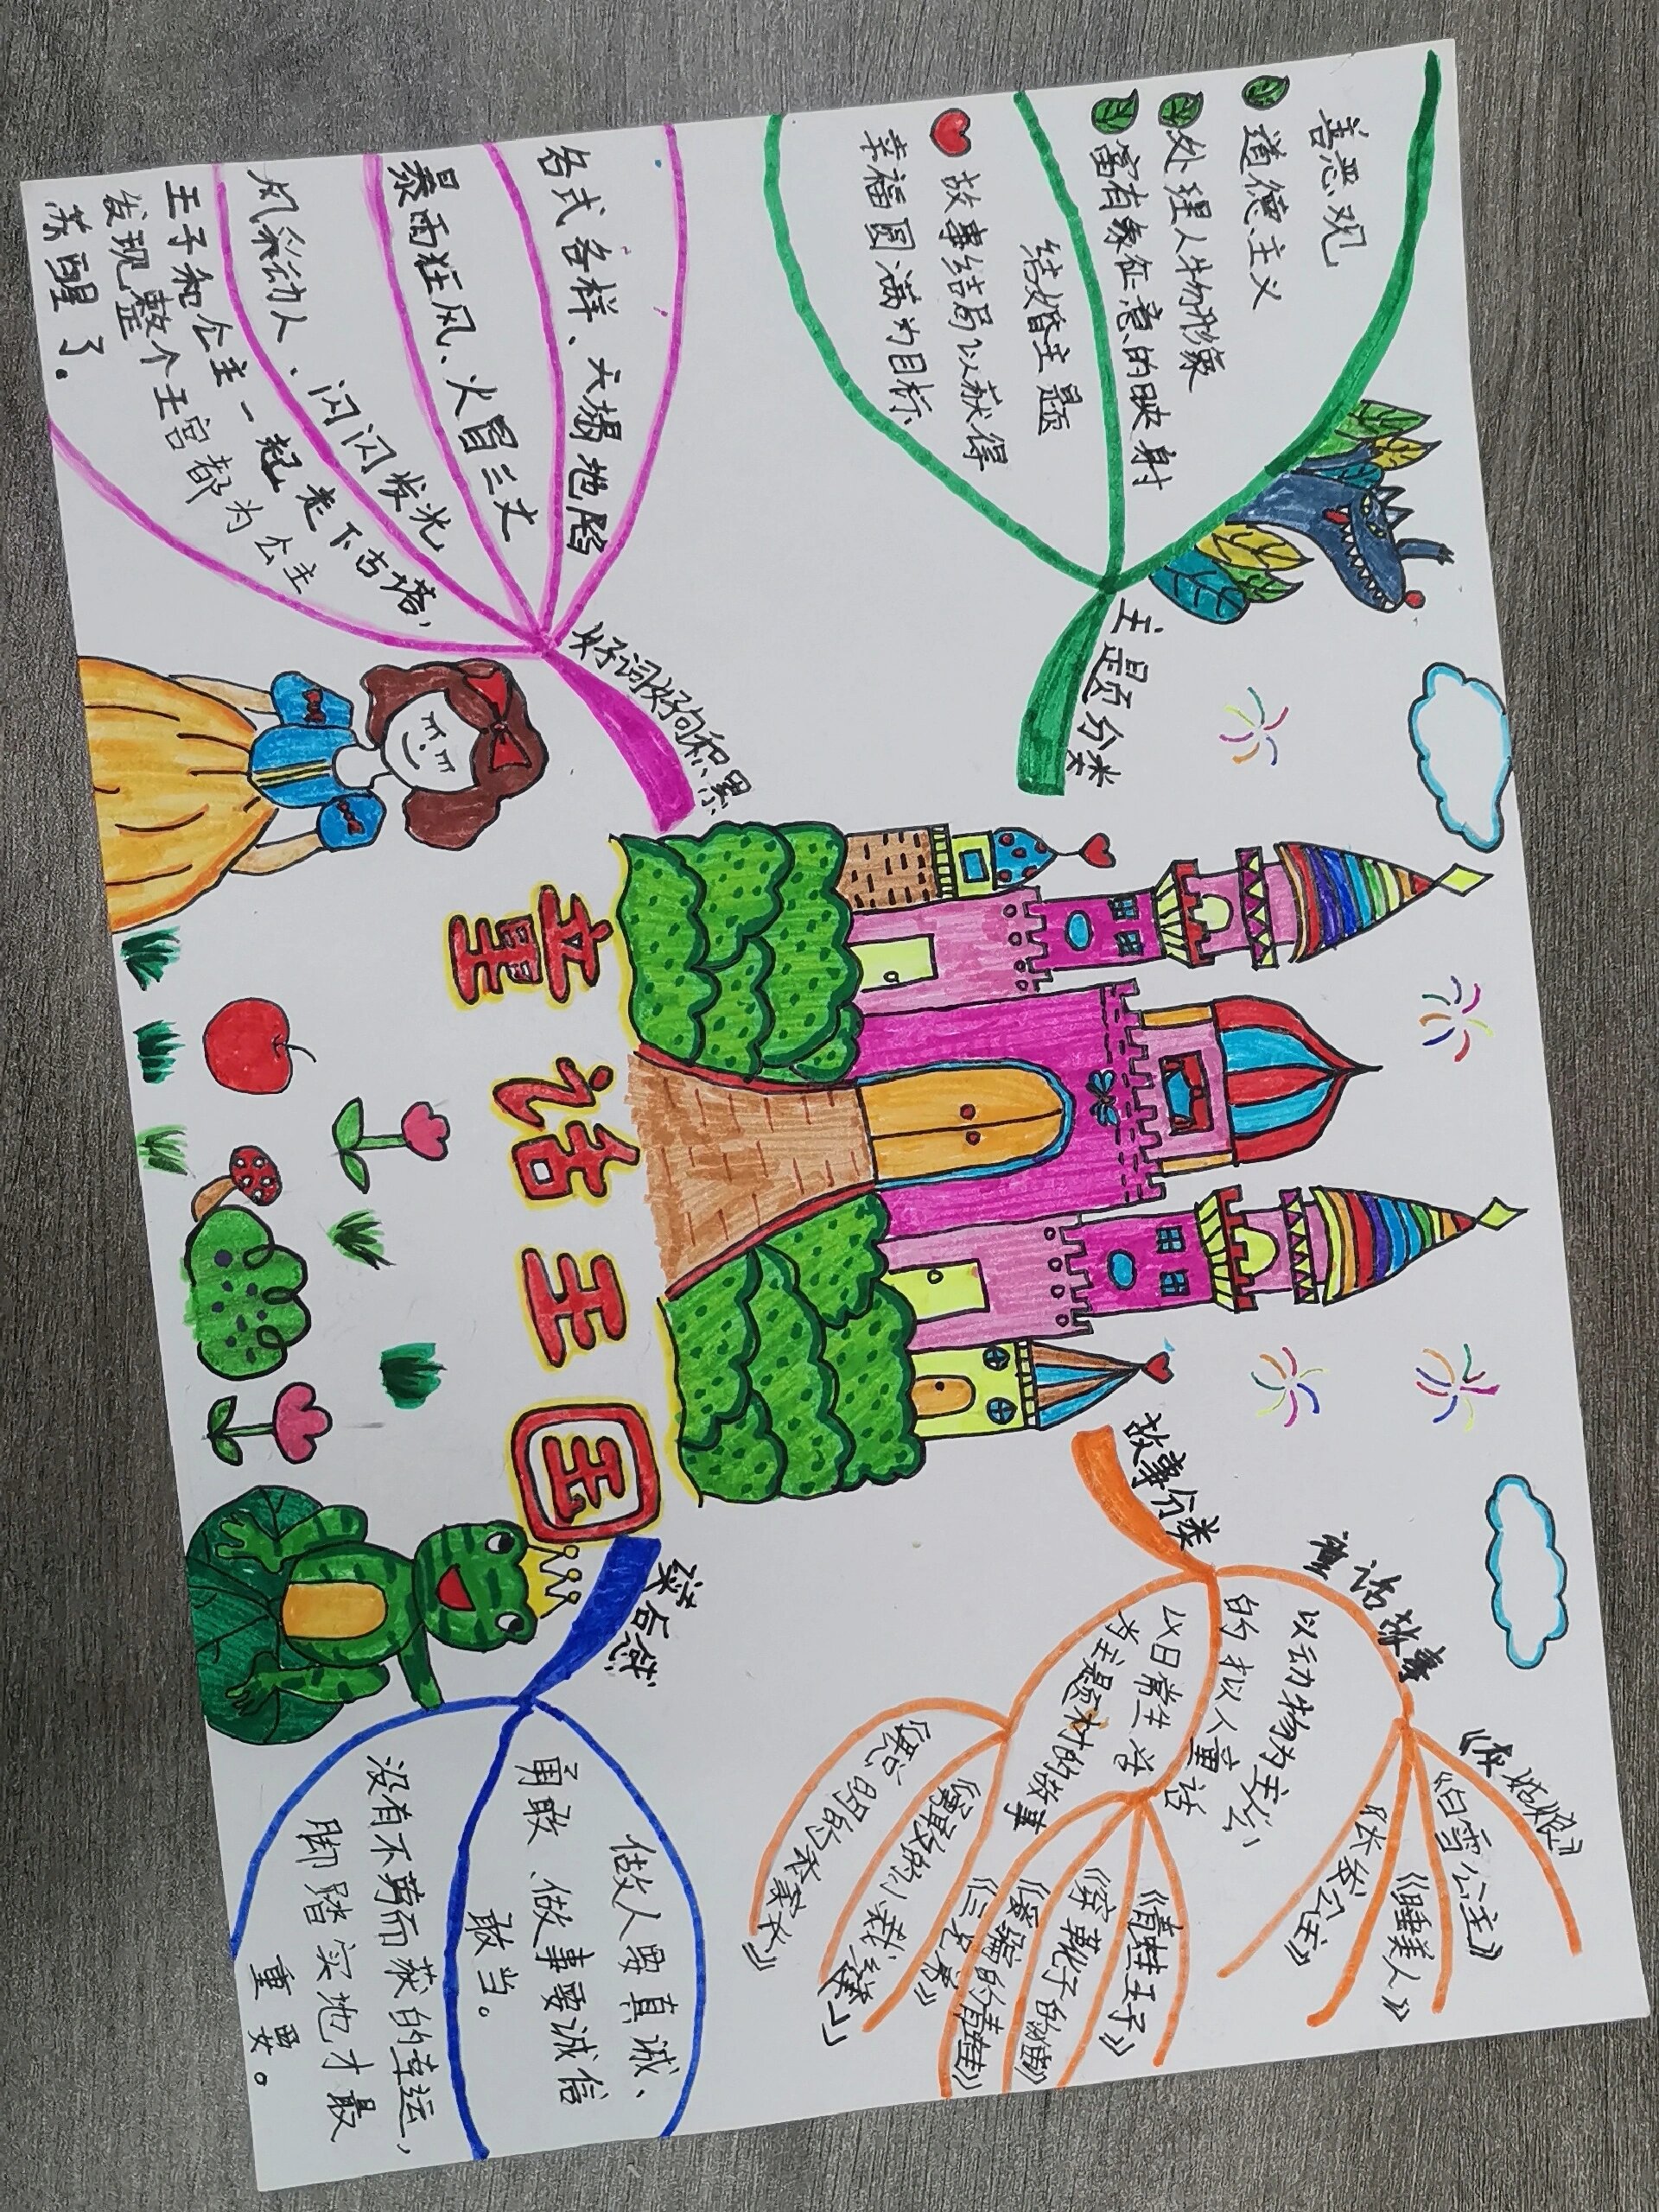 童话王国
主题分类
善恶观
道德主义
处理人物形象
富有象征意的映射
结婚主题
故事结局以获得
幸福圆满为目标
好词好句积累
各式各样、天塌地陷
暴雨狂风、火冒三丈
风彩动人、闪闪发光
王子和公主一起走下古塔，
发现整个王宫都为公主
苏醒了。
故事分类
童话故事
《灰姑娘》
《白雪公主》
《睡美人》
《长发公主》
以动物为主公
的拟人童话
《青蛙王子》
《穿靴子的猫》
《爱骗的青蛙》
《三只熊》
以日常生活
当主题材的故事
《聪明的小裁缝》
《聪明的农家女》
读后感
做人要真诚、
勇敢、做事要诚信
敢当。
没有不劳而获的幸运，
脚踏实地才最
重要。